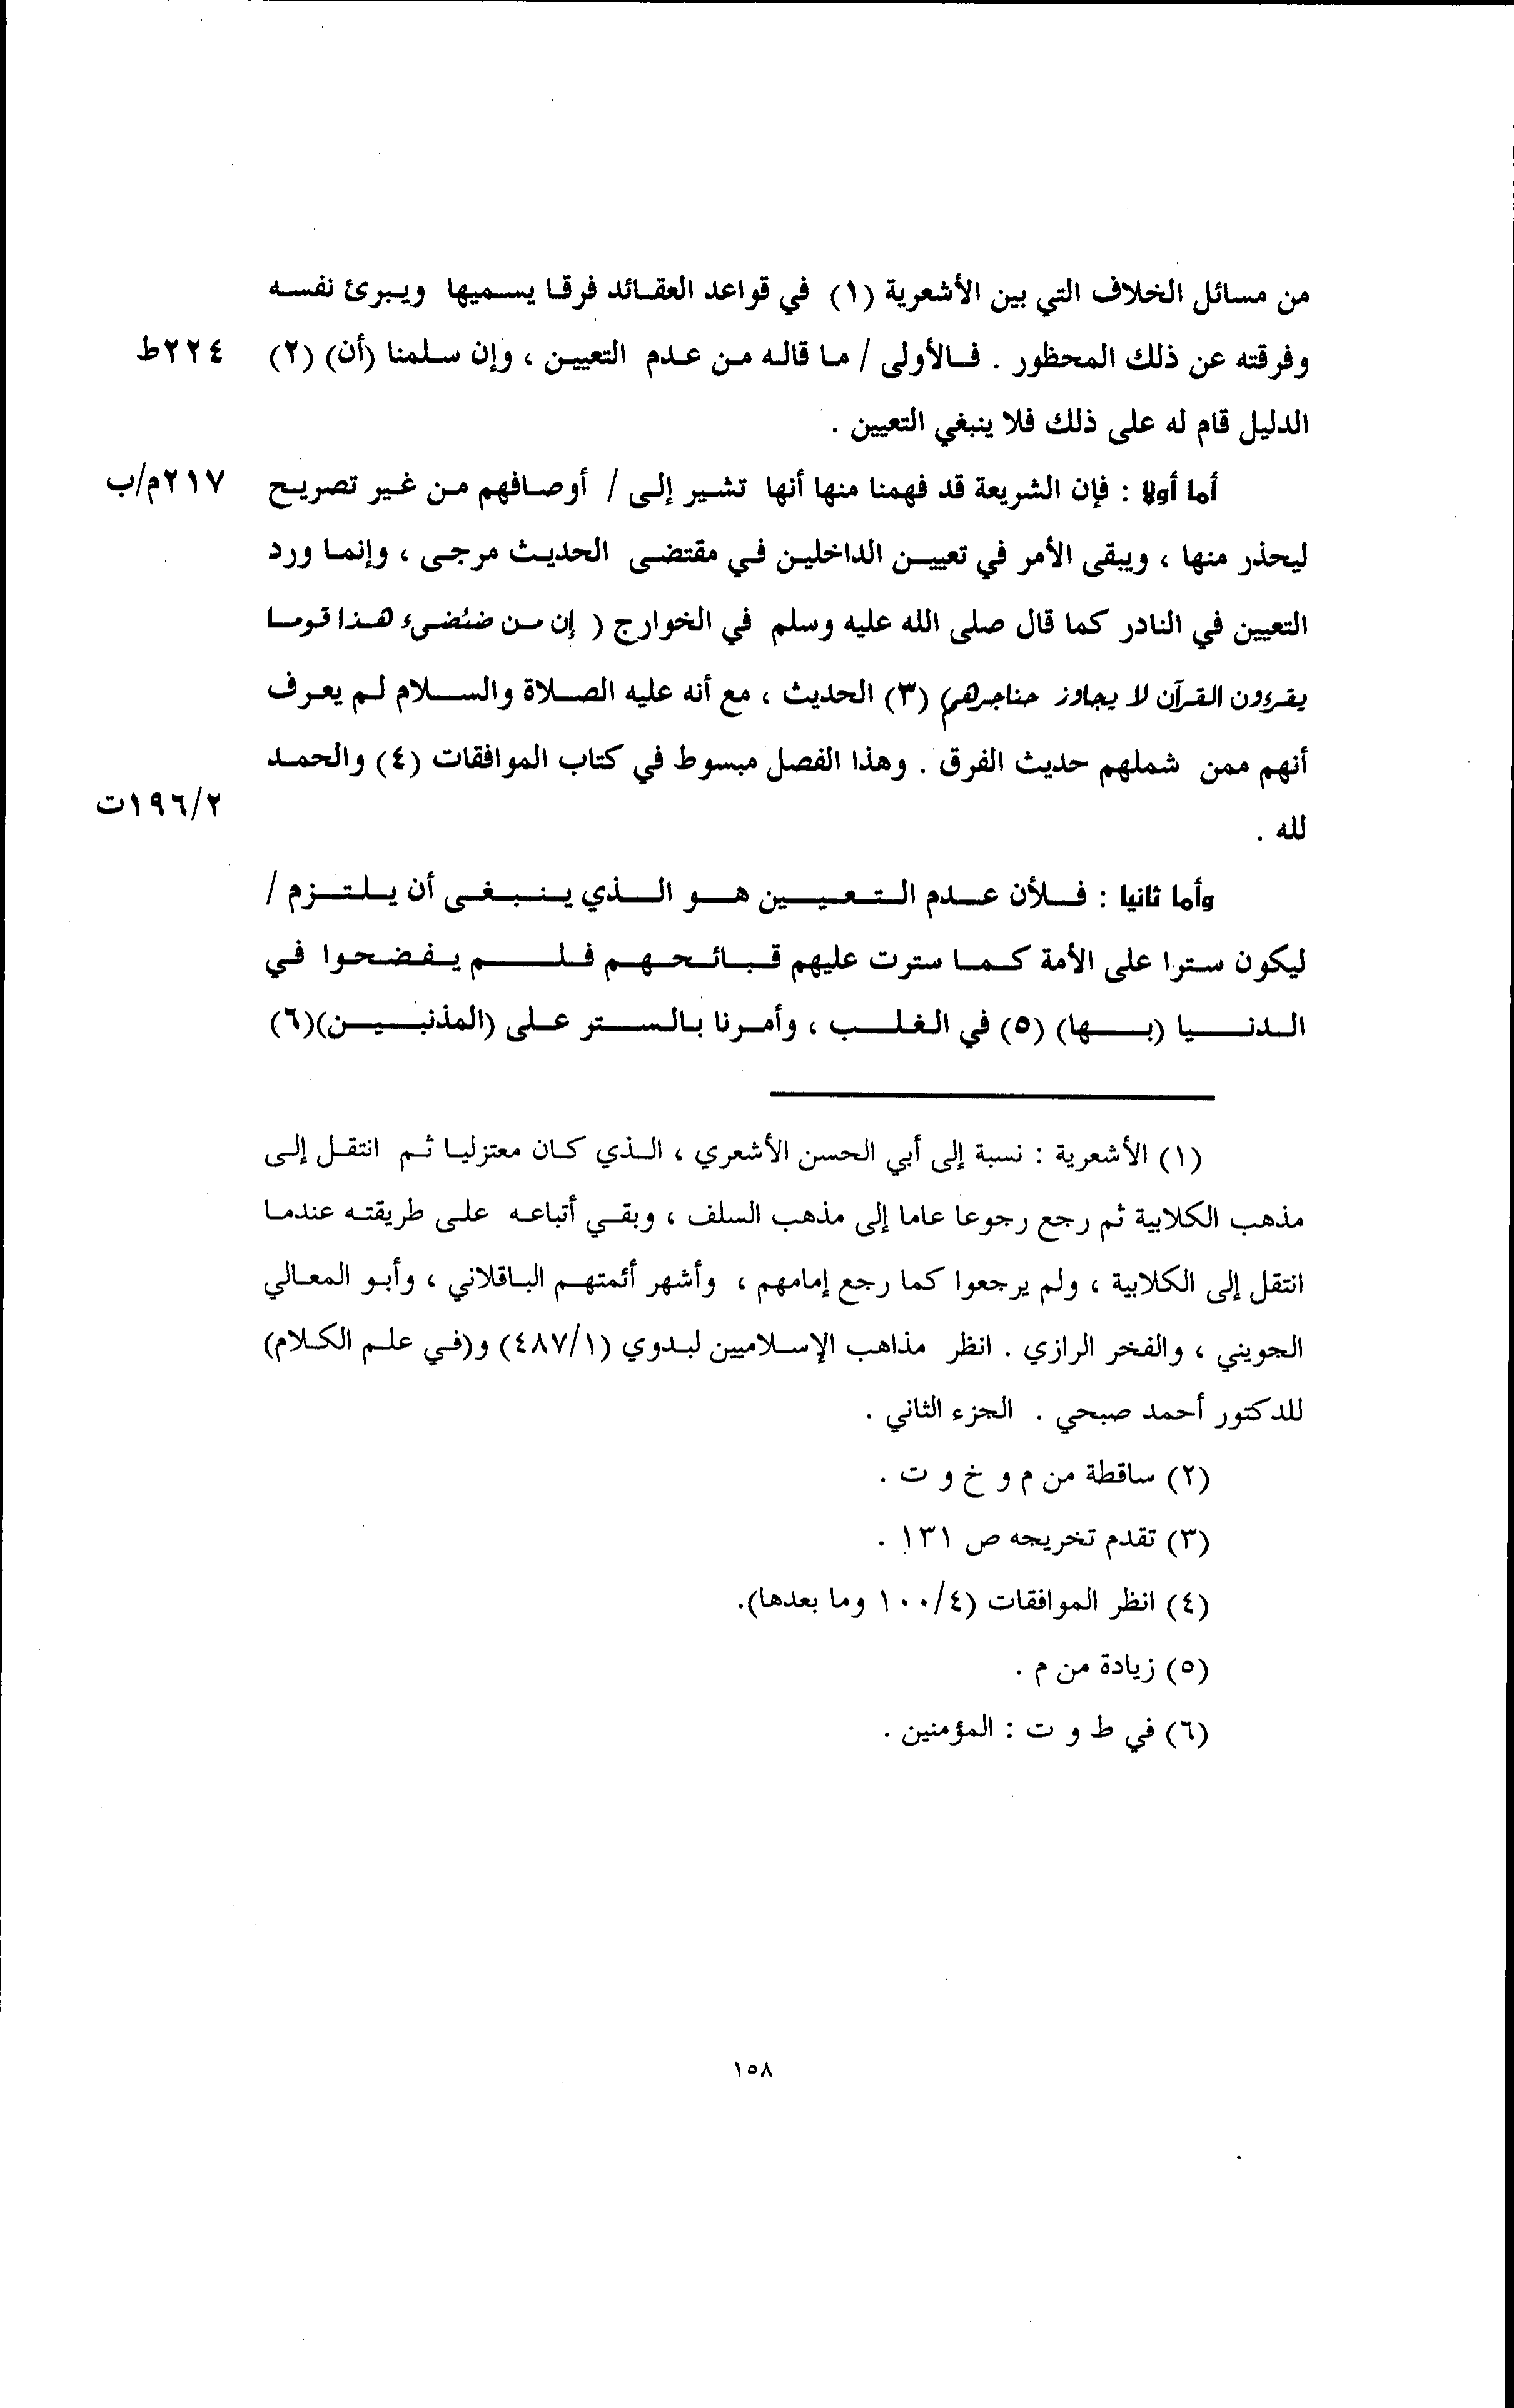 من مسائل الخلاف التي بين الأشعرية (١) في قواعد العقائد فرقا يسميها ويبرئ نفسه
وفرقته عن ذلك المحظور . فالأولى / ما قاله من عدم التعيين ، وإن سلمنا (أن) (٢)
٢٢٤ط
الدليل قام له على ذلك فلا ينبغي التعيين .
أما أولا : فإن الشريعة قد فهمنا منها أنها تشير إلى / أوصافهم من غير تصريح
٢١٧م/ب
ليحذر منها ، ويبقى الأمر في تعيين الداخلين في مقتضى الحديث مرجى ، وإنما ورد
التعيين في النادر كما قال صلى الله عليه وسلم في الخوارج ( إن من ضئضىء هذا قوما
يقرءون القرآن لا يجاوز حناجرهم) (٣) الحديث ، مع أنه عليه الصلاة والسلام لم يعرف
أنهم ممن شملهم حديث الفرق . وهذا الفصل مبسوط في كتاب الموافقات (٤) والحمد
لله .
١٩٦/٢ت
وأما ثانيا : فلأن عدم التعيين هو الذي ينبغى أن يلتزم /
ليكون سترا على الأمة كما سترت عليهم قبائحهم فلم يفضحوا في
الدنيا (بها) (٥) في الغلب ، وأمرنا بالستر على (المذنبين)(٦)
(١) الأشعرية : نسبة إلى أبي الحسن الأشعري ، الذي كان معتزليا ثم انتقل إلى
مذهب الكلابية ثم رجع رجوعا عاما إلى مذهب السلف ، وبقي أتباعه على طريقته عندما
انتقل إلى الكلابية ، ولم يرجعوا كما رجع إمامهم ، وأشهر أئمتهم الباقلاني ، وأبو المعالي
الجويني ، والفخر الرازي . انظر مذاهب الإسلاميين لبدوي (٤٨٧/١) و(في علم الكلام)
للدكتور أحمد صبحي . الجزء الثاني .
(٢) ساقطة من م و خ و ت .
(٣) تقدم تخريجه ص ١٣١ .
(٤) انظر الموافقات (١٠٠/٤ وما بعدها).
(٥) زيادة من م .
(٦) في ط و ت : المؤمنين .
١٥٨